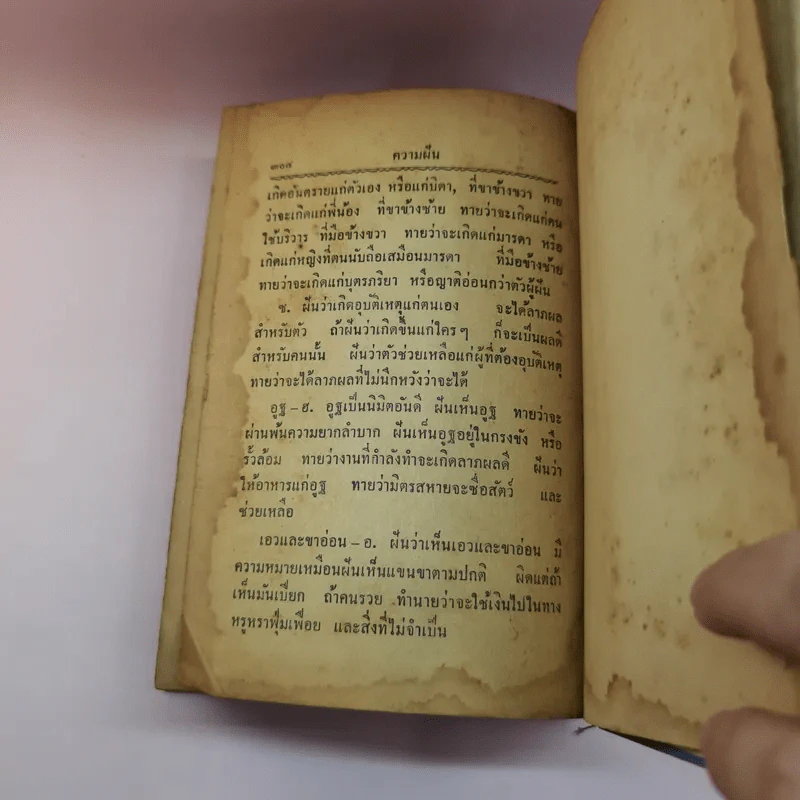 ๓๐๔ ความฝัน
เกิดอันตรายแก่ตัวเอง หรือแก่บิดา, ที่ขาข้างขวา ทาย
ว่าจะเกิดแก่พี่น้อง ที่ขาข้างซ้าย ทายว่าจะเกิดแก่คน
ใช้บริวาร ที่มือข้างขวา ทายว่าจะเกิดแก่มารดา หรือ
เกิดแก่หญิงที่ตนนับถือเสมือนมารดา ที่มือข้างซ้าย
ทายว่าจะเกิดแก่บุตรภริยา หรือญาติอ่อนกว่าตัวผู้ฝัน
ซ. ฝันว่าเกิดอุบัติเหตุแก่ตนเอง จะได้ลาภผล
สำหรับตัว ถ้าฝันว่าเกิดขึ้นแก่ใครๆ ก็จะเป็นผลดี
สำหรับคนนั้น ฝันว่าตัวช่วยเหลือแก่ผู้ที่ต้องอุบัติเหตุ
ทายว่าจะได้ลาภผลที่ไม่นึกหวังว่าจะได้
อูฐ – ฮ. อูฐเป็นนิมิตอันดี ฝันเห็นอูฐ ทายว่าจะ
ผ่านพ้นความยากลำบาก ฝันเห็นอูฐอยู่ในกรงขัง หรือ
รั้วล้อม ทายว่างานที่กำลังทำจะเกิดลาภผลดี ฝันว่า
ให้อาหารแก่อูฐ ทายว่ามิตรสหายจะซื่อสัตว์ และ
ช่วยเหลือ
เอวและขาอ่อน – อ. ฝันว่าเห็นเอวและขาอ่อน มี
ความหมายเหมือนฝันเห็นแขนขาตามปกติ ผิดแต่ถ้า
เห็นมันเปียก ถ้าคนรวย ทำนายว่าจะใช้เงินไปในทาง
หรูหราฟุ่มเฟือย และสิ่งที่ไม่จำเป็น